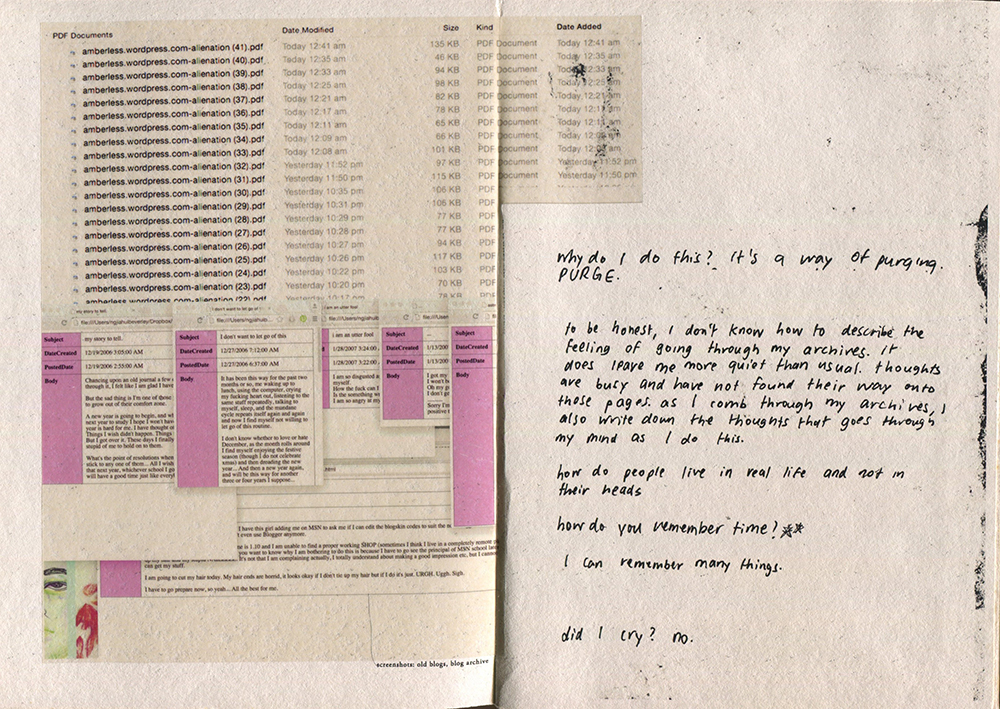 PDF Documents Date Modified Size Kind Date Added
amberless.wordpress.com-alienation (41).pdf Today 12:41 am 135 KB PDF Document Today 12:41 am
amberless.wordpress.com-alienation (40).pdf Today 12:35 am 46 KB PDF Document Today 12:35 am
amberless.wordpress.com-alienation (39).pdf Today 12:33 am 94 KB PDF Document Today 12:33 am
amberless.wordpress.com-alienation (38).pdf Today 12:25 am 98 KB PDF Document Today 12:25 am
amberless.wordpress.com-alienation (37).pdf Today 12:21 am 82 KB PDF Document Today 12:21 am
amberless.wordpress.com-alienation (36).pdf Today 12:17 am 78 KB PDF Document
amberless.wordpress.com-alienation (35).pdf Today 12:11 am 65 KB PDF Document Today 12:11 am
amberless.wordpress.com-alienation (34).pdf Today 12:09 am 66 KB PDF Document
amberless.wordpress.com-alienation (33).pdf Today 12:08 am 101 KB PDF Document
amberless.wordpress.com-alienation (32).pdf Yesterday 11:52 pm 97 KB PDF Document Yesterday 11:52 pm
amberless.wordpress.com-alienation (31).pdf Yesterday 11:50 pm 115 KB PDF Document Yesterday 11:50 pm
amberless.wordpress.com-alienation (30).pdf Yesterday 10:35 pm 106 KB PDF
amberless.wordpress.com-alienation (29).pdf Yesterday 10:31 pm 106 KB PDF
amberless.wordpress.com-alienation (28).pdf Yesterday 10:29 pm 77 KB PDF
amberless.wordpress.com-alienation (27).pdf Yesterday 10:28 pm 77 KB PDF
amberless.wordpress.com-alienation (26).pdf Yesterday 10:27 pm 94 KB PDF
amberless.wordpress.com-alienation (25).pdf Yesterday 10:26 pm 117 KB PDF
amberless.wordpress.com-alienation (24).pdf Yesterday 10:22 pm 103 KB PDF
amberless.wordpress.com-alienation (23).pdf Yesterday 10:20 pm 70 KB PDF
amberless.wordpress.com-alienation (22).pdf Yesterday 10:17 pm 78 KB PDF
Subject my story to tell.
DateCreated 12/19/2006 3:05:00 AM
PostedDate 12/19/2006 2:55:00 AM
Body Chancing upon an old journal a few
through it, I felt like I am glad I have
But the sad thing is I'm one of those
to grow out of their comfort zone.
A new year is going to begin, and wh
next year to study I hope I won't have
year is hard for me. I have thought
Things I wish didn't happen. Things
But I got over it. These days I finally
stupid of me to hold on to them.
What's the point of resolutions when
stick to any of them... All I wish
that next year, whichever school I g
will have a good time just like every
Subject I don't want to let go of this
DateCreated 12/27/2006 7:12:00 AM
PostedDate 12/27/2006 6:37:00 AM
Body It has been this way for the past two
months or so, me waking up to
lunch, using the computer, crying
my fucking heart out, listening to the
same stuff repeatedly, talking to
myself, sleep, and the mundane
cycle repeats itself again and again
and now I find myself not wanting to
let go of this routine.
I don't know whether to love or hate
December, as the month rolls around
I find myself enjoying the festive
season (though I do not celebrate
xmas) and then dreading the new
year... And then a new year again,
and will be this way for another
three or four years I suppose...
I am an utter fool
1/28/2007 3:24:00
1/28/2007 3:22:00
I am so disgusted a
myself.
How the fuck can I
Is the something w
I am so angry at my
Subject
DateCreated 1/13/200
PostedDate 1/13/200
Body I got my
I won't b
Oh my g
I don't ge
Sorry I'm
positive t
Subject
DateCreated
PostedDate
Body
I have this girl adding me on MSN to ask me if I can edit the blogskin codes to suit the
t even use Blogger anymore.
ne is 1.10 and I am unable to find a proper working SHOP (sometimes I think I live in a completely remote
you want to know why I am bothering to do this is because I have to go see the principal of MSN school
It's not that I am complaining actually, I totally understand about making a good impression etc, but I
can get my stuff.
I am going to cut my hair today. My hair ends are horrid, it looks okay if I don't tie up my hair but if I do it's just. URGH. Uggh. Sigh.
I have to go prepare now, so yeah... All the best for me.
screenshots: old blogs, blog archive
why do I do this? It's a way of purging.
PURGE.
to be honest, I don't know how to describe the
feeling of going through my archives. It
does leave me more quiet than usual. thoughts
are busy and have not found their way onto
those pages. as I comb through my archives, I
also write down the thoughts that goes through
my mind as I do this.
how do people live in real life and not in
their heads
how do you remember time?**
I can remember many things.
did I cry? no.